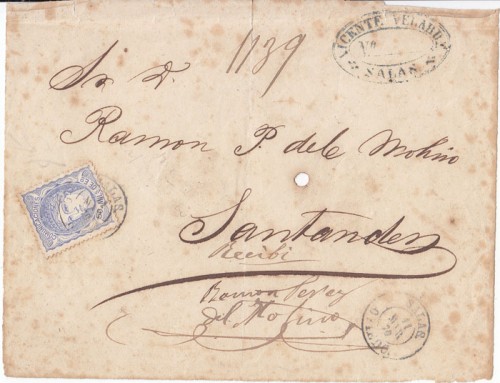 1139
VICENTE VELARDE
Nº
SALAS
Sr. D.
Ramon P. del Molino
Santander
Recibi
Ramon Perez
del Molino
SALAS